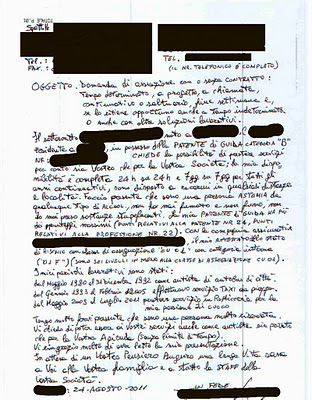 Spett.le
TEL.:
FAX.:
TEL.
(IL NR. TELEFONICO È COMPLETO)
OGGETTO: Domanda di assunzione con o senza CONTRATTO:
Tempo determinato, a progetto, a chiamata,
continuativo o saltuario, fine settimana e,
se lo ritiene opportuno anche a Tempo indeterminato
o anche con altre soluzioni lavorative:
Il sottoscritto nato a il
residente a in possesso della PATENTE DI GUIDA CATEGORIA "B"
NR: CHIEDE la possibilità di
per conto sia Vostro che per la Vostra Società; la mia dispo
nibilità è completa 24 h su 24 h e 7gg su 7gg per tutti gli
anni continuativi, sono disposto a recarmi in qualsiasi distanza
e località. Faccio presente che sono una persona ASTEMIA da
qualsiasi tipo di Alcool, non ho mai fumato e non fumo, non
ho mai preso sostanze stupefacenti, la mia PATENTE DI GUIDA HA PIÙ
punteggi massimi (PUNTI RELATIVI ALLA PATENTE NR 24, PUNTI
RELATIVI ALLA PROFESSIONE NR. 22). Con la compagnia assicurativa
il mio attestato stato
di RISCHIO con classe di assegnazione "CU 01" con categoria interna
I miei periodi lavorativi sono stati:
dal Maggio 1980 al Dicembre 1992 come autista di autobus di città.
dal Gennaio 1993 al Febbraio 2005 effettuavo servizio TAXI da piazza.
dal Maggio 2005 al Luglio 2011 prestavo servizio in Pasticceria, poi la
mia passione di cuoco
Tengo molto farvi presente che sono una persona molto riservata.
Vi chiedo di poter essere ai Vostri servizi anche come autista sia privato
che per la Vostra Azienda (senza limiti di tempo).
Vi ringrazio molto di aver letto la mia presentazione.
In attesa di un Vostro Pensiero Auguro una lunga Vita serena
a Voi alla Vostra famiglia e a tutto lo STAFF della
Vostra Società.
: 24-AGOSTO-2011 IN FEDE